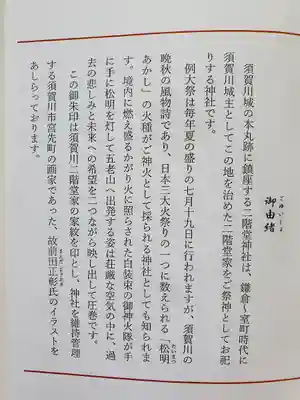 御由緒
ごゆいしょ
須賀川城の本丸跡に鎮座する二階堂神社は、鎌倉〜室町時代に
須賀川城主としてこの地を治めた二階堂家をご祭神としてお祀
りする神社です。
例大祭は毎年夏の盛りの七月十九日に行われますが、須賀川の
晩秋の風物詩であり、日本三大火祭りの一つに数えられる「松明
たいまつ
あかし」の火種がご神火として採られる神社としても知られま
す。境内に燃え盛るかがり火に照らされた白装束の御神火隊が手
に手に松明を灯して五老山へ出発する姿は荘厳な空気の中に、過
去の悲しみと未来への希望を二つながら映し出して圧巻です。
この御朱印は須賀川二階堂家の家紋を印とし、神社を維持管理
する須賀川市宮先町の画家であった、故前田正彰氏のイラストを
あしらっております。